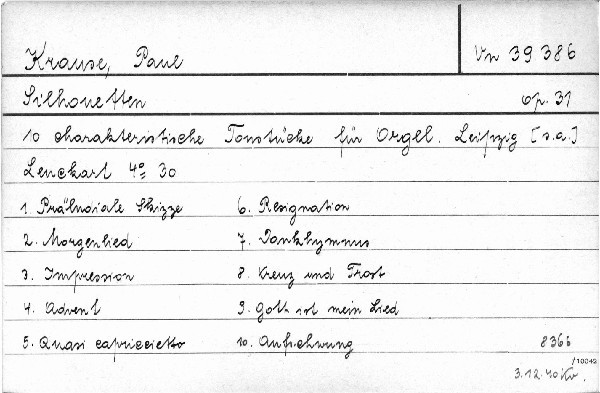 Krause, Paul Vn 39 386
Silhouetten op. 31
10 charakteristische Tonstücke für Orgel. Leipzig [s.a.]
Leuckart 4° 30
1. Präludiale Skizze 6. Resignation
2. Morgenlied 7. Dankhymnus
3. Impression 8. Kreuz und Trost
4. Advent 9. Gott ist mein Lied
5. Quasi capriccietto 10. Auferstehung 8366
/10042
3.12.40 Kr.